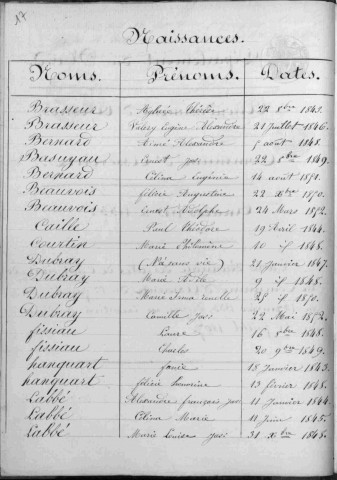 17
Naissances.
Noms. Prénoms. Dates.
Brasseur Thérèse 22 8bre 1843.
Brasseur Valery Eugène Alexandre 21 Juillet 1846.
Bernard Aimé Alexandre 5 août 1848.
Basuyau Ernest 22 8bre 1849.
Bernard Célina Eugénie 14 août 1851.
Beauvois Augustine 22 Xbre 1850.
Beauvois Ernest Adolphe 24 Mars 1852.
Caille Paul Théodore 19 Avril 1844.
Courtin Marie Philomène 10 if 1848.
Dubray (Né sans vie) 21 Janvier 1847.
Dubray Marie 9 if 1848.
Dubray Marie 25 if 1850.
Dubray Camille 22 Mai 1852.
fissiau Laure 16 8bre 1848.
fissiau Charles 20 9bre 1849.
hanquart 18 Janvier 1843.
hanquart félicie 13 février 1848.
Labbé Alexandre françois 11 Janvier 1844.
Labbé Célina Marie 11 Juin 1845.
Labbé Marie Louise 31 Xbre 1848.